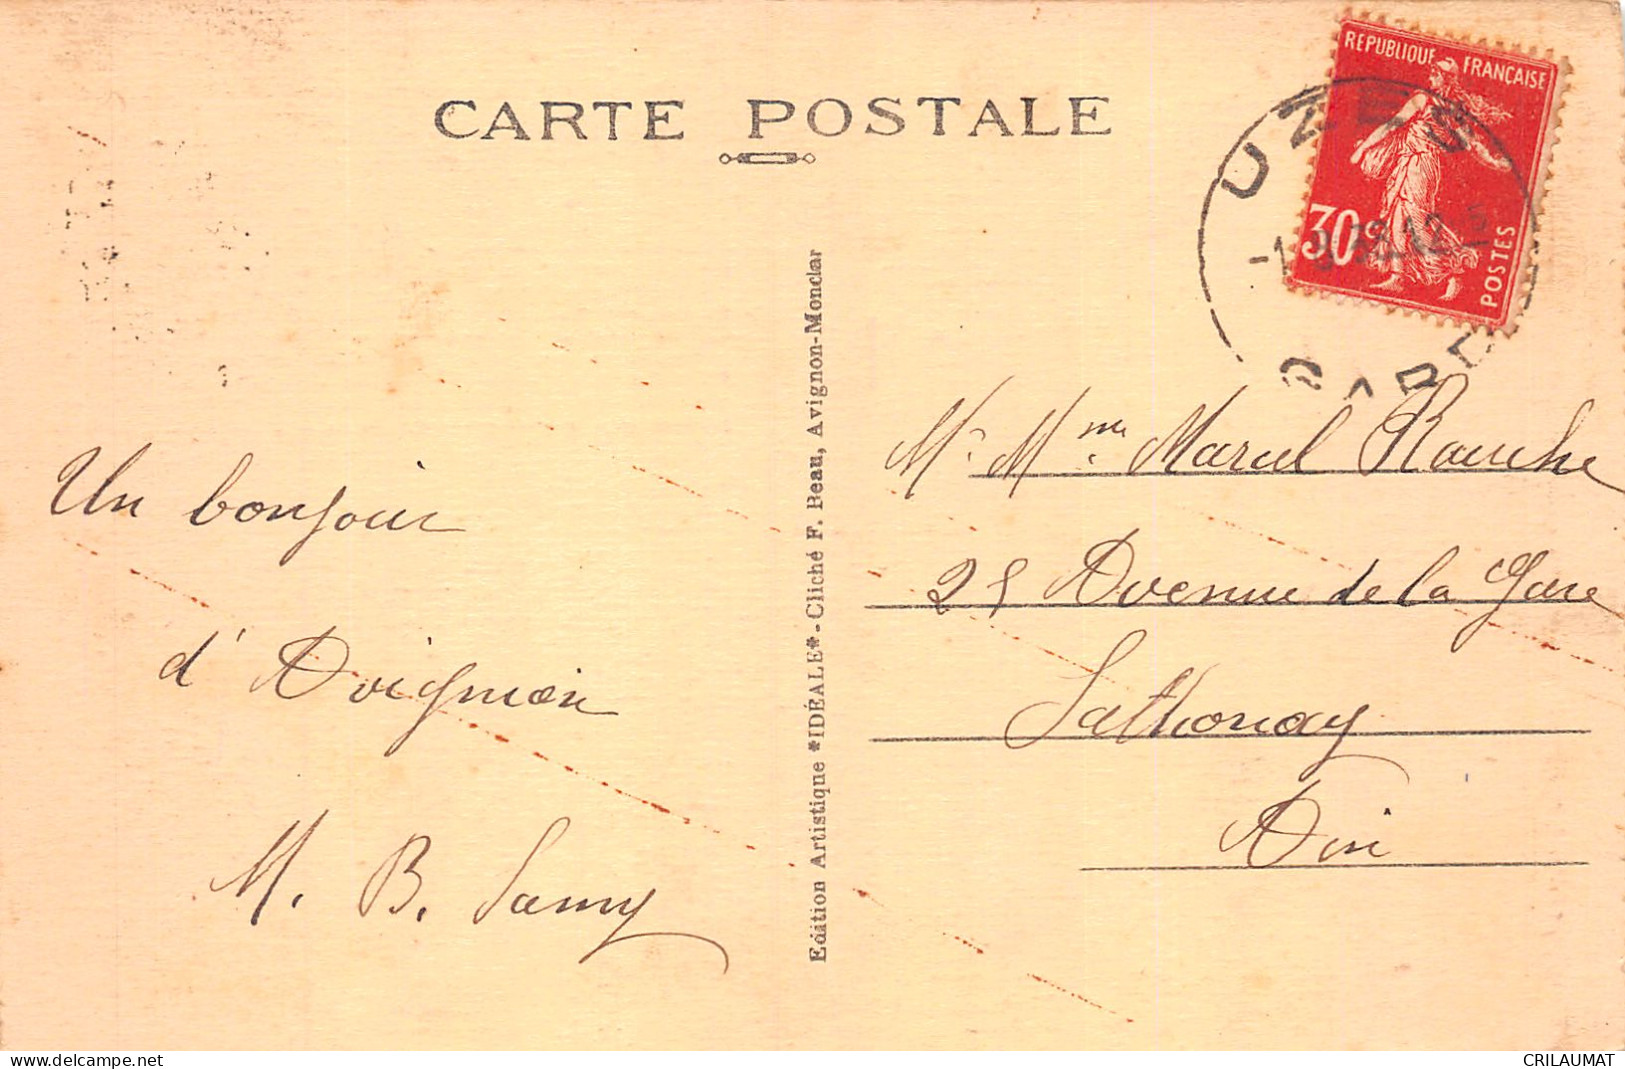 CARTE POSTALE
REPUBLIQUE FRANÇAISE
30c
POSTES
UZES
GARD
Un bonjour
d'Avignon
M. B. Samy
Edition Artistique *IDÉALE* - Cliché F. Beau, Avignon-Monclar
Mr Mme Marcel Rauche
25 Avenue de la Gare
Sathonay
Ain
delcampe.net
CRILAUMAT